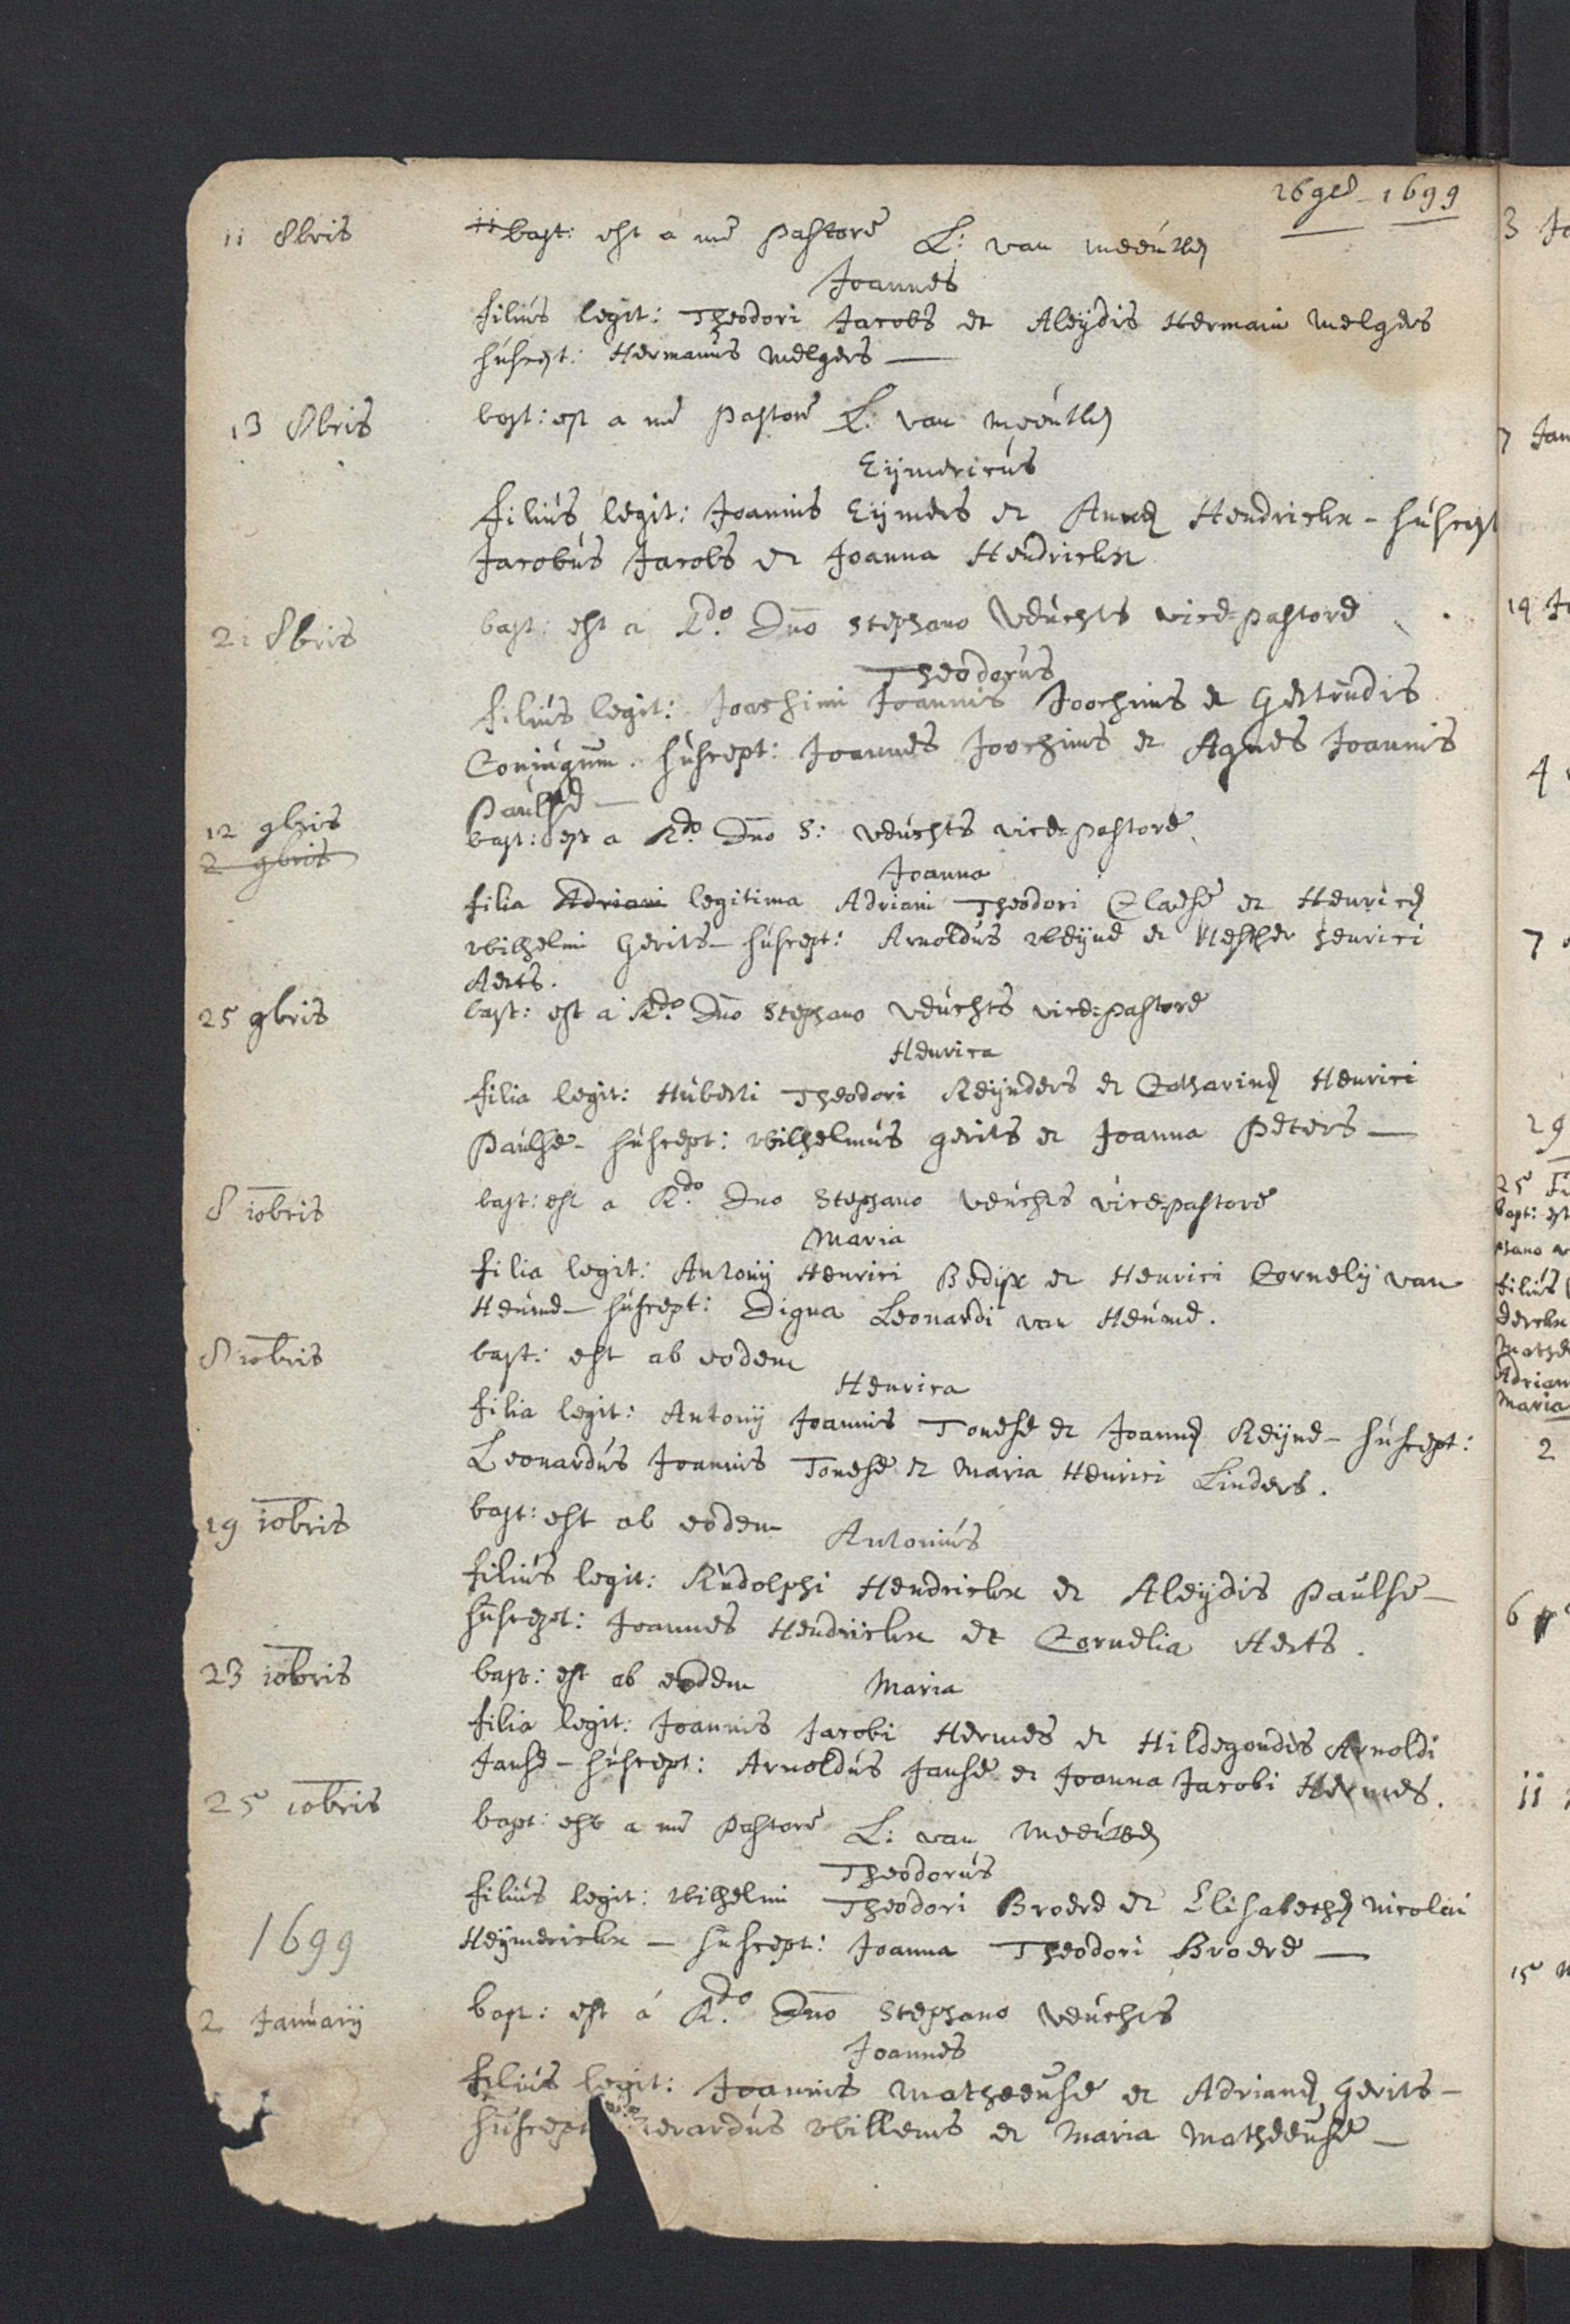 26 ged - 1699
11 8bris bapt: est a me Pastore L: van meeúwe
Joannes
filiús legit: Theodori Jacobs et Aleijdis Hermani melgers
súscept: Hermanús melgers —
13 8bris bapt: est a me Pastore L: van meeúwe
Eijmericús
filiús legit: Joannis Eijmers et Annæ Hendrickx - súscept
Jacobús Jacobs et Joanna Hendrickx
21 8bris bapt: est a Rdo. Dno Stephano Veúchts vice-pastore
Theodorús
filiús legit: Joachimi Joannis Joochims et Gertrudis
Conjúgum. súscept: Joannes Joochims et Agnes Joannis
Paulse —
12 9bris bapt: est a Rdo. Dno S: veúchts vice-pastore
2 9bris
Joanna
filia Adriani legitima Adriani Theodori Claese et Henricæ
Wilhelmi Gerits - súscept: Arnoldús Weijne et Hesther henrici
Aerts.
25 9bris bapt: est a Rdo. Dno Stephano veúchts vice-pastore
Henrica
filia legit: Húberti Theodori Reijnders et Catharinæ Henrici
Paúlse - súscept: Wilhelmús gerits et Joanna Peters —
8 10bris bapt: est a Rdo. Dno Stephano veúchts vice-pastore
Maria
filia legit: Antonij Henrici et Henrici Cornelij van
súscept: Digna Leonardi van
8 10bris bapt: est ab eodem
Henrica
filia legit: Antonij Joannis Tonese et Joannæ Reijne - súscept:
Leonardús Joannis Tonese et Maria Henrici Linders.
19 10bris bapt: est ab eodem
Antoniús
filiús legit: Rúdolphi Hendrickx et Aleijdis Paúlse —
súscept: Joannes Hendrickx et Cornelia Aerts.
23 10bris bapt: est ab eodem Maria
filia legit: Joannis Jacobi Hermes et Hildegondis Arnoldi
Janse - súscept: Arnoldús Janse et Joanna Jacobi Hermes.
25 10bris bapt: est a me Pastore L: van Meeúwe
Theodorús
filiús legit: Wilhelmi Theodori Broere et Elisabethæ Nicolai
Heijmerickx — súscept: Joanna Theodori Broere —
1699
2 Januarij bapt: est á Rdo. Dno Stephano veúchts
Joannes
filiús legit: Joannis Matheeúse et Adrianæ Gerits —
súscept erardús Willems et Maria Matheeúse —